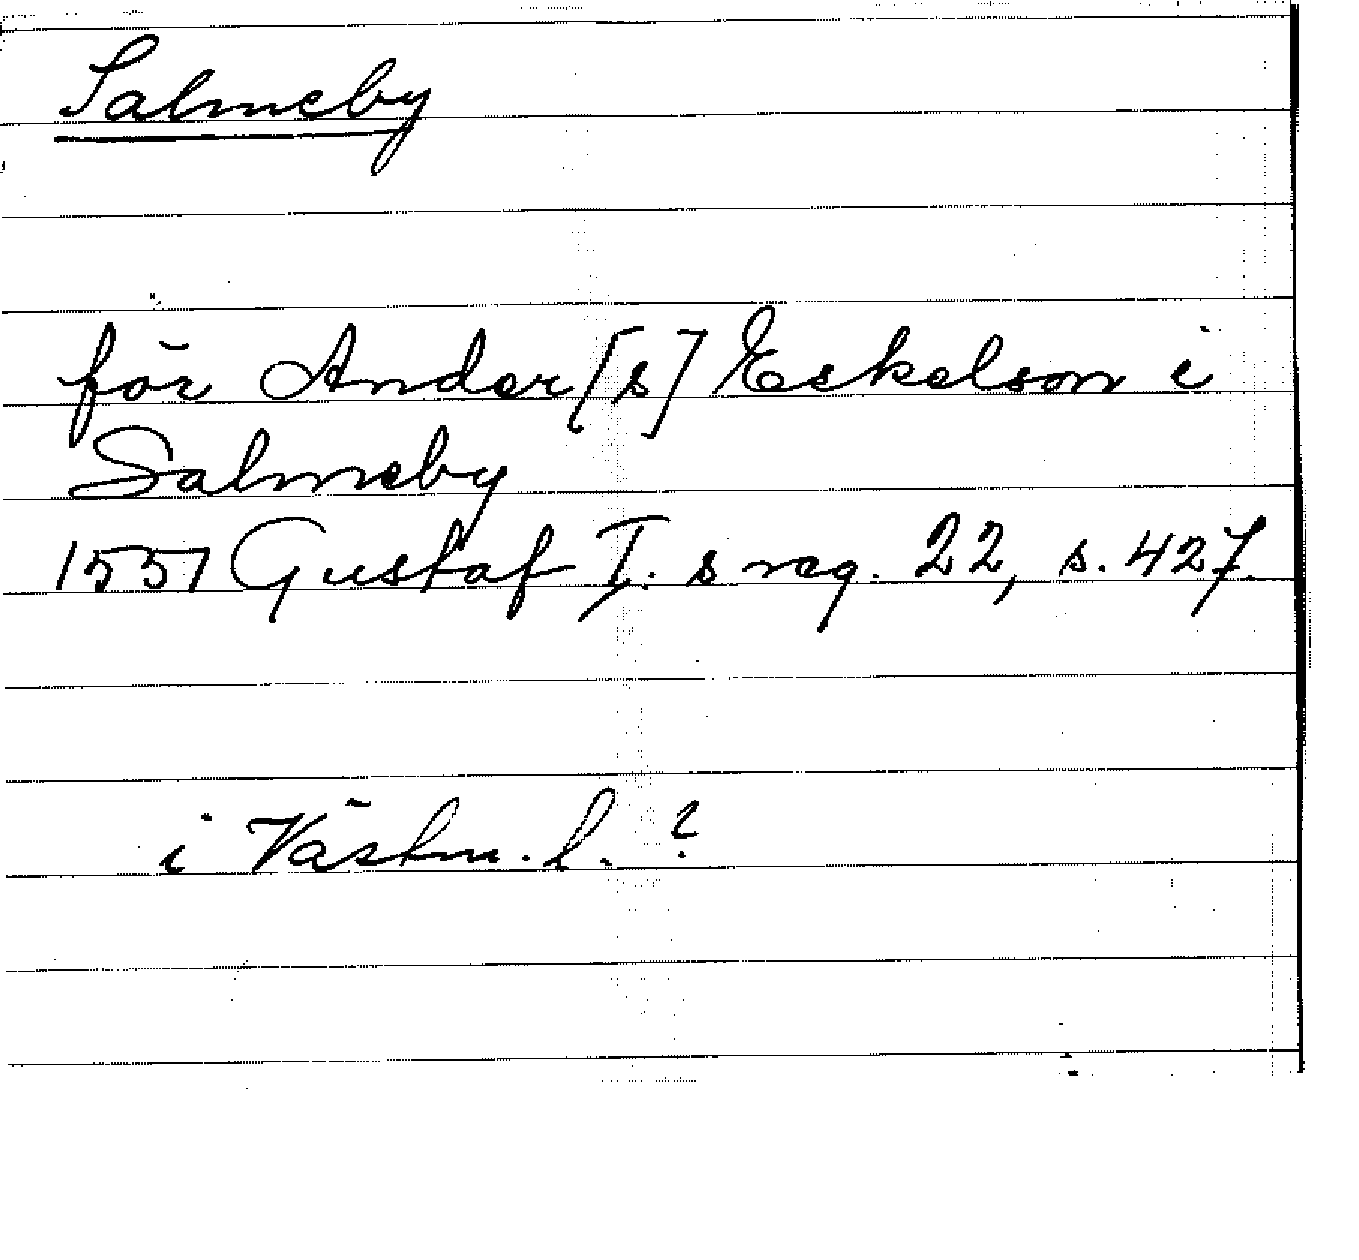 Salmeby
för Ander[s] Eskelson i
Salmeby
1551 Gustaf I. s reg. 22, s. 427.
i Västm. l. ?